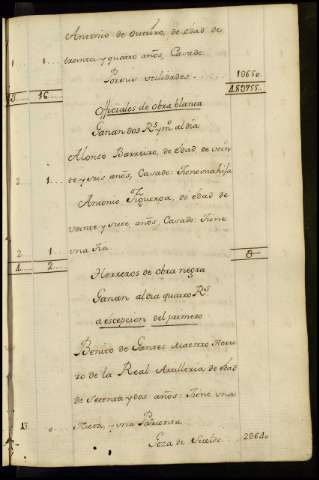 Antonio de Outeiro, de edad de
1 1 treinta y quatro años, Casado.
Por sus utilidades . . . . 1065„
3 16 15$755„
Officiales de obra blanca
Ganan dos R.s y m.o al dia
Alonso Barreiro, de edad de vein
2 1 te y seis años, Casado: Tiene una hija
Antonio Figueroa, de edad de
veinte y siete años, Casado. Tiene
2 1 una Tia
4 2 0
Herreros de obra negra
Ganan al dia quatro R.s
a excepcion del primero
Benito de Ganres Maestro Herre
ro de la Real Artilleria, de edad
de setenta y dos años: Tiene una
13 0 Nieta, y una Parienta.
Goza de Sueldo . . 2260„